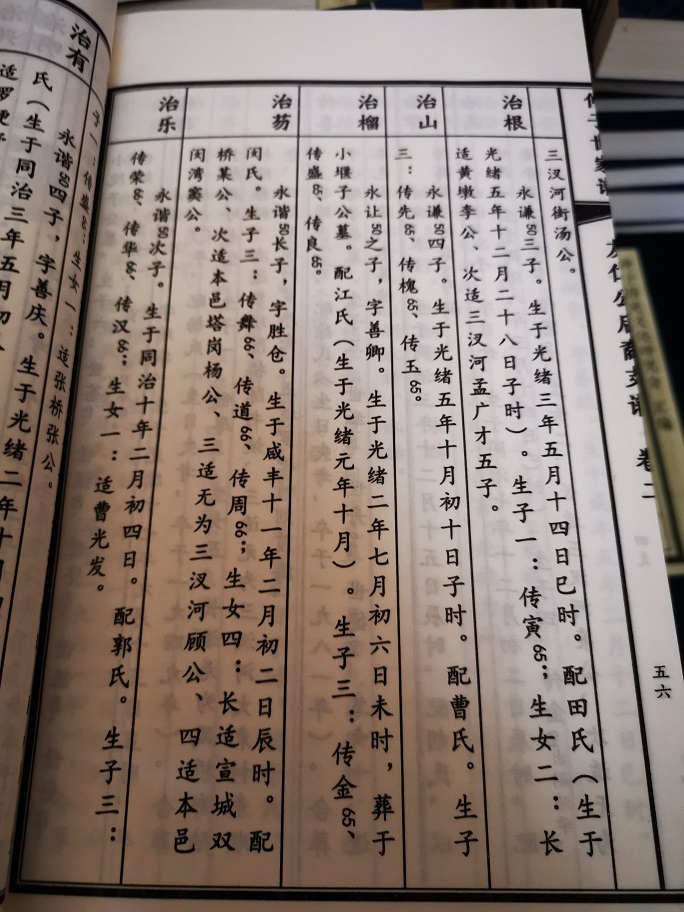 卷二
五六
三汊河街汤公。
治根
永谦50三子。生于光绪三年五月十四日巳时。配田氏（生于
光绪五年十二月二十八日子时）。生子一：传寅65；生女二：长
适黄墩李公、次适三汊河孟广才五子。
治山
永谦50四子。生于光绪五年十月初十日子时。配曹氏。生子
三：传先65、传槐65、传玉65。
治榴
永让50之子，字善卿。生于光绪二年七月初六日未时，葬于
小堰子公墓。配江氏（生于光绪元年十月）。生子三：传金65、
传盛65、传良65。
治芴
永谐50长子，字胜仓。生于咸丰十一年二月初二日辰时。配
闵氏。生子三：传舞66、传道66、传周66；生女四：长适宣城双
桥某公、次适本邑塔岗杨公、三适无为三汊河顾公、四适本邑
闵湾窦公。
治乐
永谐50次子。生于同治十年二月初四日。配郭氏。生子三：
传荣66、传华66、传汉66；生女一：适曹光发。
生女一：适张桥张公。
治有
永谐50四子，字善庆。生于光绪二年十月初
氏（生于同治三年五月初